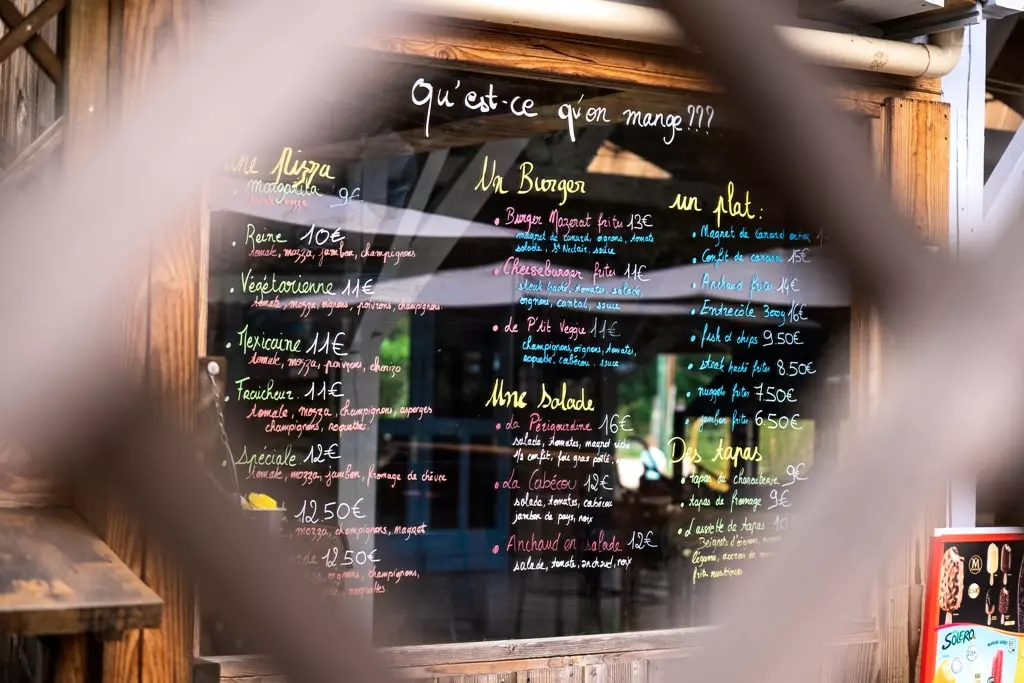 Qu'est-ce qu'on mange ???
une Pizza
. Margarita 9€
. Reine 10€
tomate, mozza, jambon, champignons
. Végétarienne 11€
tomate, mozza, oignons, poivrons, champignons
. Mexicaine 11€
tomate, mozza, poivrons, chorizo
. Fraicheur 11€
tomate, mozza, champignons, asperges
champignons, roquette
. Spéciale 12€
tomate, mozza, jambon, fromage de chèvre
12.50€
mozza, champignons, magret
12.50€
oignons, champignons,
Un Burger
• Burger Mazerat frites 13€
magret de canard, oignons, tomate
salade, St Nectair, sauce
• Cheeseburger frites 11€
steak haché, tomates, salade,
oignons, cantal, sauce
• Le P'tit Veggie 11€
champignons, oignons, tomates,
roquette, cabécou, sauce
Une Salade
• La Périgourdine 16€
salade, tomates, magret séché
confit, foie gras poêlé
• La Cabécou 12€
salade, tomates, cabécou
jambon de pays, noix
• Anchaud en salade 12€
salade, tomate, anchaud, noix
un plat :
• Magret de Canard
• Confit de canard 15€
• Anchaud frites 14€
• Entrecôte 300g 16€
• fish & chips 9.50€
• steak haché frites 8.50€
• nuggets frites 7.50€
• jambon frites 6.50€
Des tapas
• tapas de charcuterie 9€
• tapas de fromage 9€
• L'assiette de tapas : 10
Beignets d'oignons,
légumes, accras de
frites rustiques
SOLERO